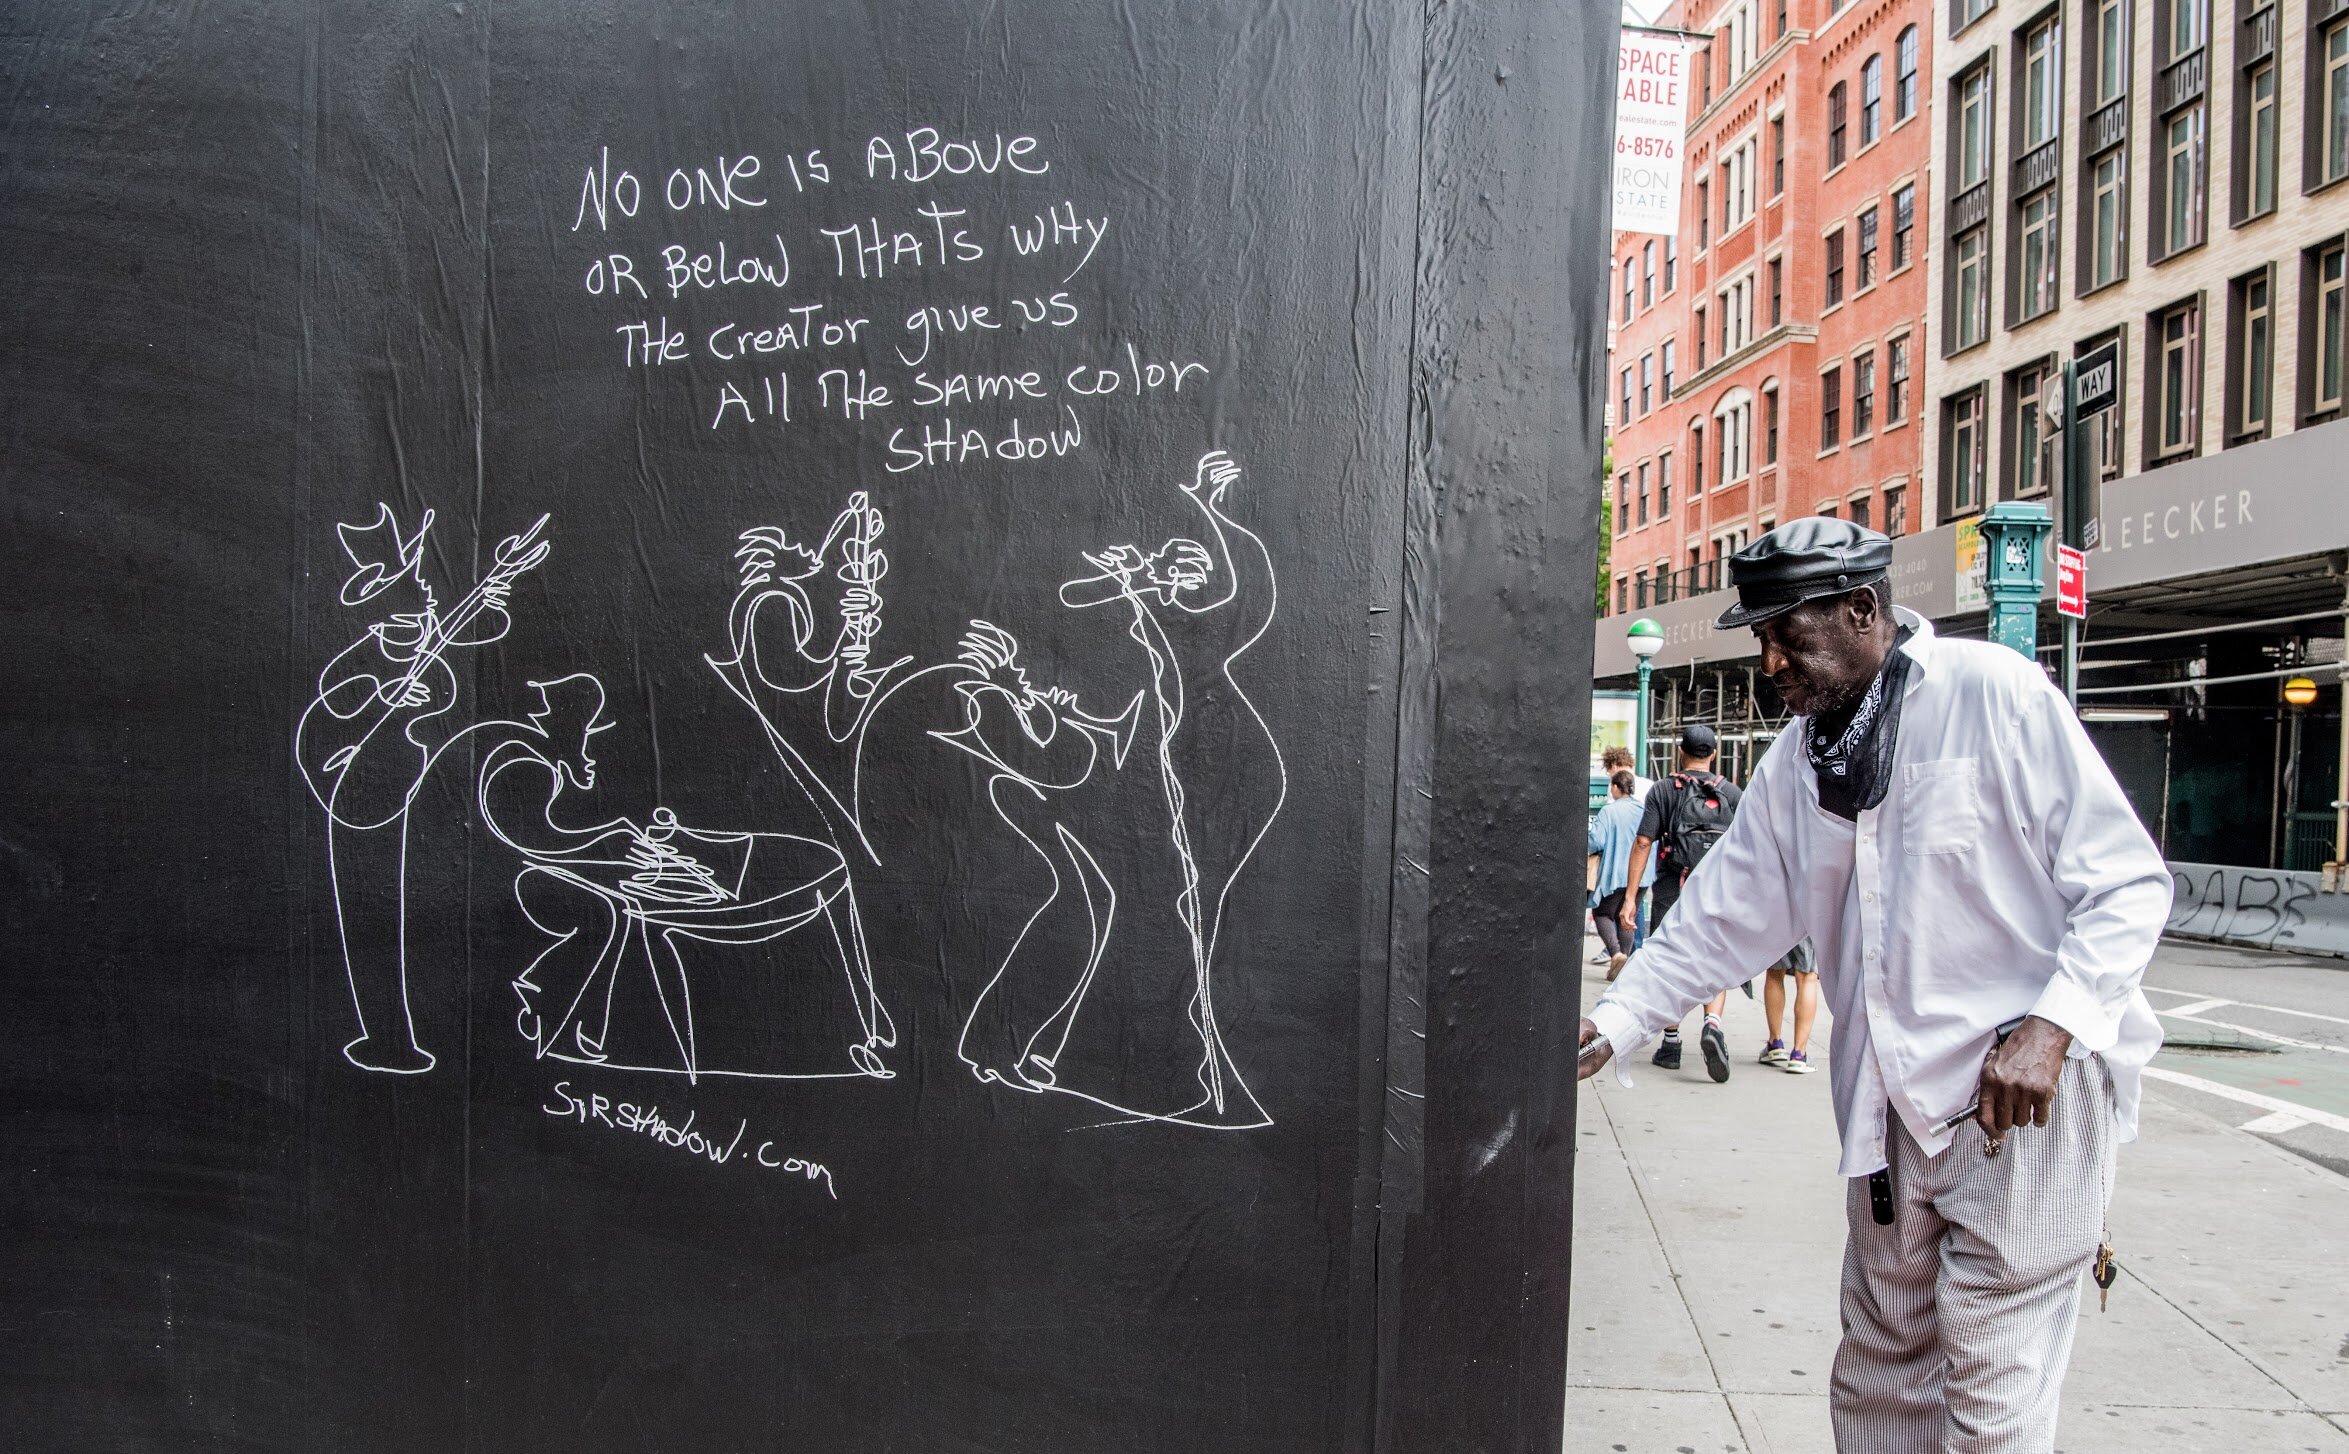 NO ONE IS ABOVE
OR BELOW THATS WHY
THE CREATOR GIVE US
All THE SAME COLOR
SHADOW
SIRSHADOW.COM
SPACE
LABLE
ealestate.com
6-8576
IRON
STATE
Residential
WAY
LEECKER
EECKER
KER.COM
CABE